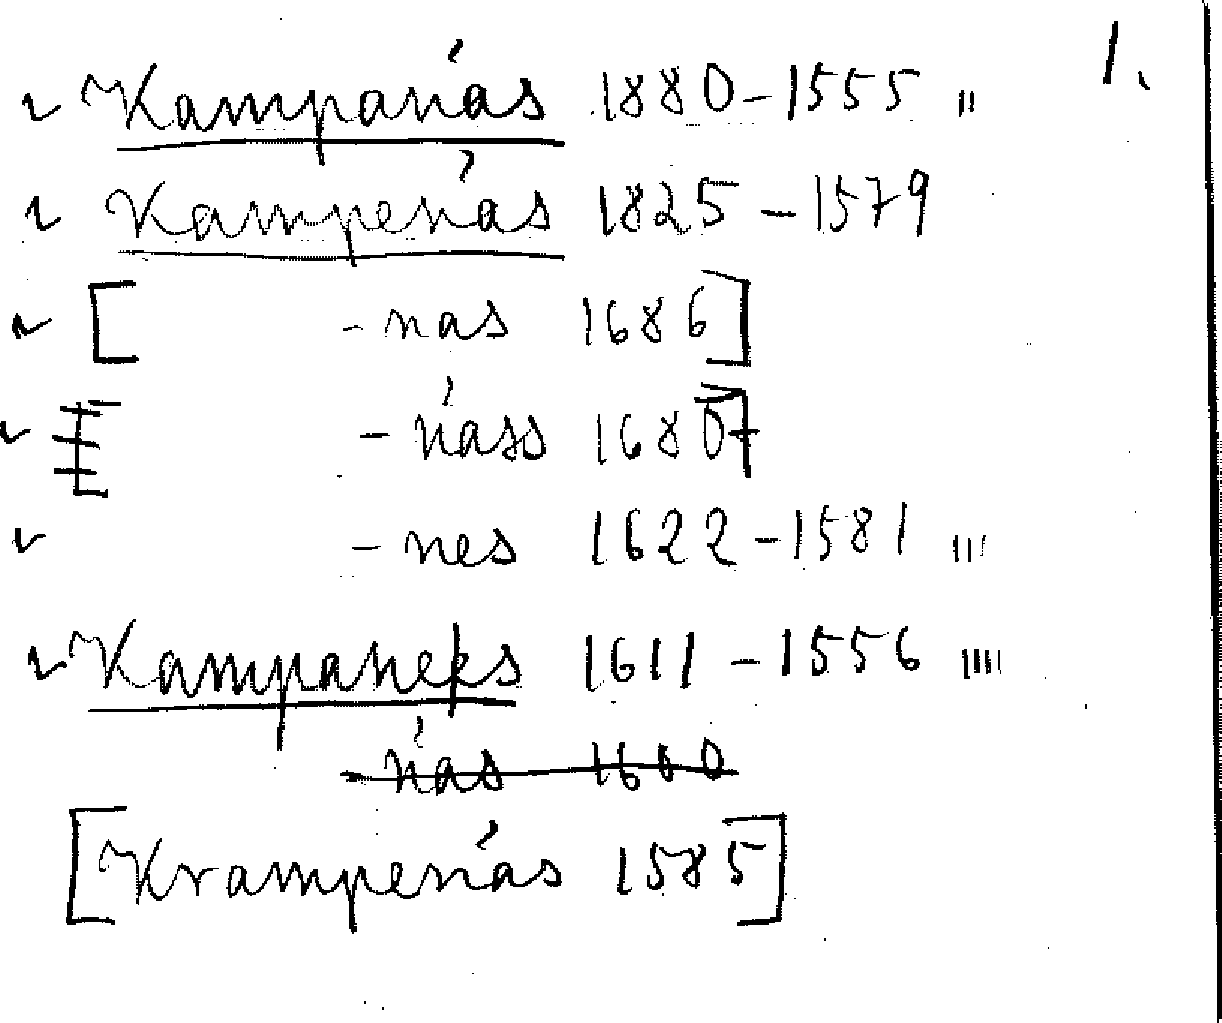 1.
✓ Kampanás 1880-1555 "
✓ Kampenás 1825-1579
✓ [ -nas 1686]
✓ [ -náss 1680]
✓ -nes 1622-1581 '''
✓ Kampanees 1611-1556 ''''
-nás 1600
[Krampenás 1585]